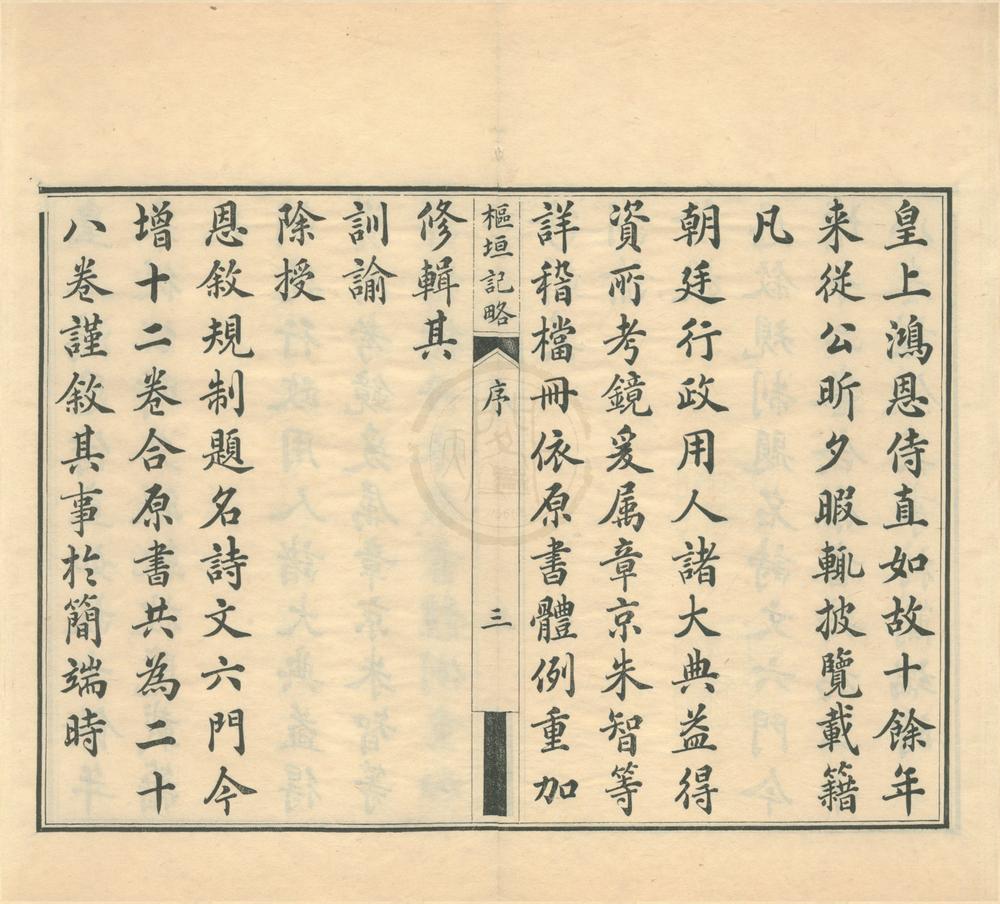 皇上鴻恩侍直如故十餘年
来從公昕夕暇輒披覽載籍
凡
朝廷行政用人諸大典益得
資所考鏡爰属章京朱智等
詳稽檔冊依原書體例重加
樞垣記略
序
三
修輯其
訓諭
除授
恩敘規制題名詩文六門今
增十二卷合原書共為二十
八卷謹敘其事於簡端時